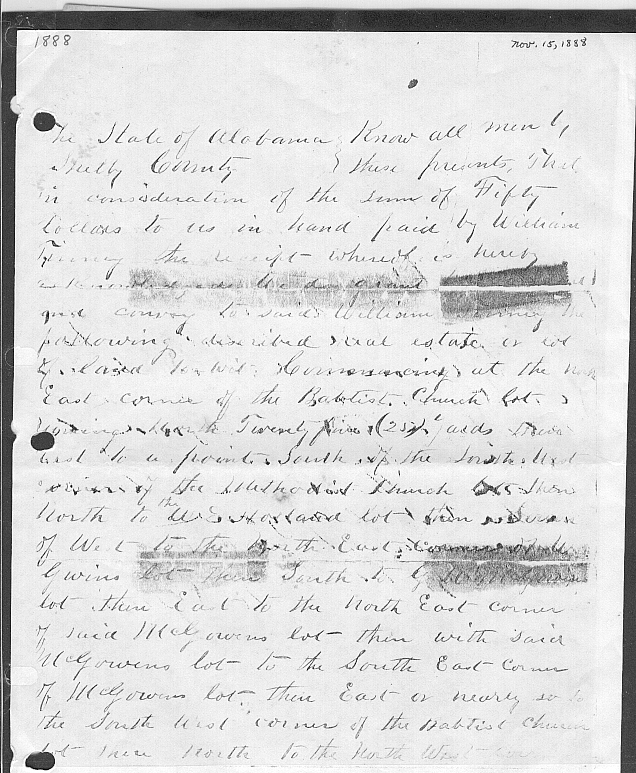 1888
Nov. 15, 1888
The State of Alabama } Know all men by
Shelby County } these presents, That
in consideration of the sum of Fifty
Dollars to us in hand paid by William
the receipt whereof is hereby
and convey to said William
following described real estate or lot
of land to wit: Commencing at the North
East corner of the Baptist Church lot
running North Twenty five (25) Yards then
East to a point South of the South West
corner of the Methodist Church lot then
North to the lot then
of West to the North East corner of
lot then South to
lot then East to the North East corner
of said McGowens lot then with said
McGowens lot to the South East corner
of McGowens lot then East or nearly so to
the South West corner of the Baptist Church
lot then North to the North West